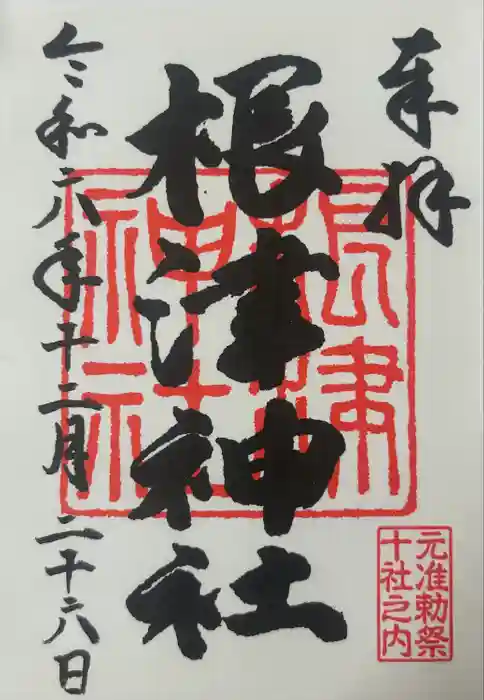 奉拝
根津神社
令和六年十二月二十八日
根津
神社
元准勅祭
十社之内